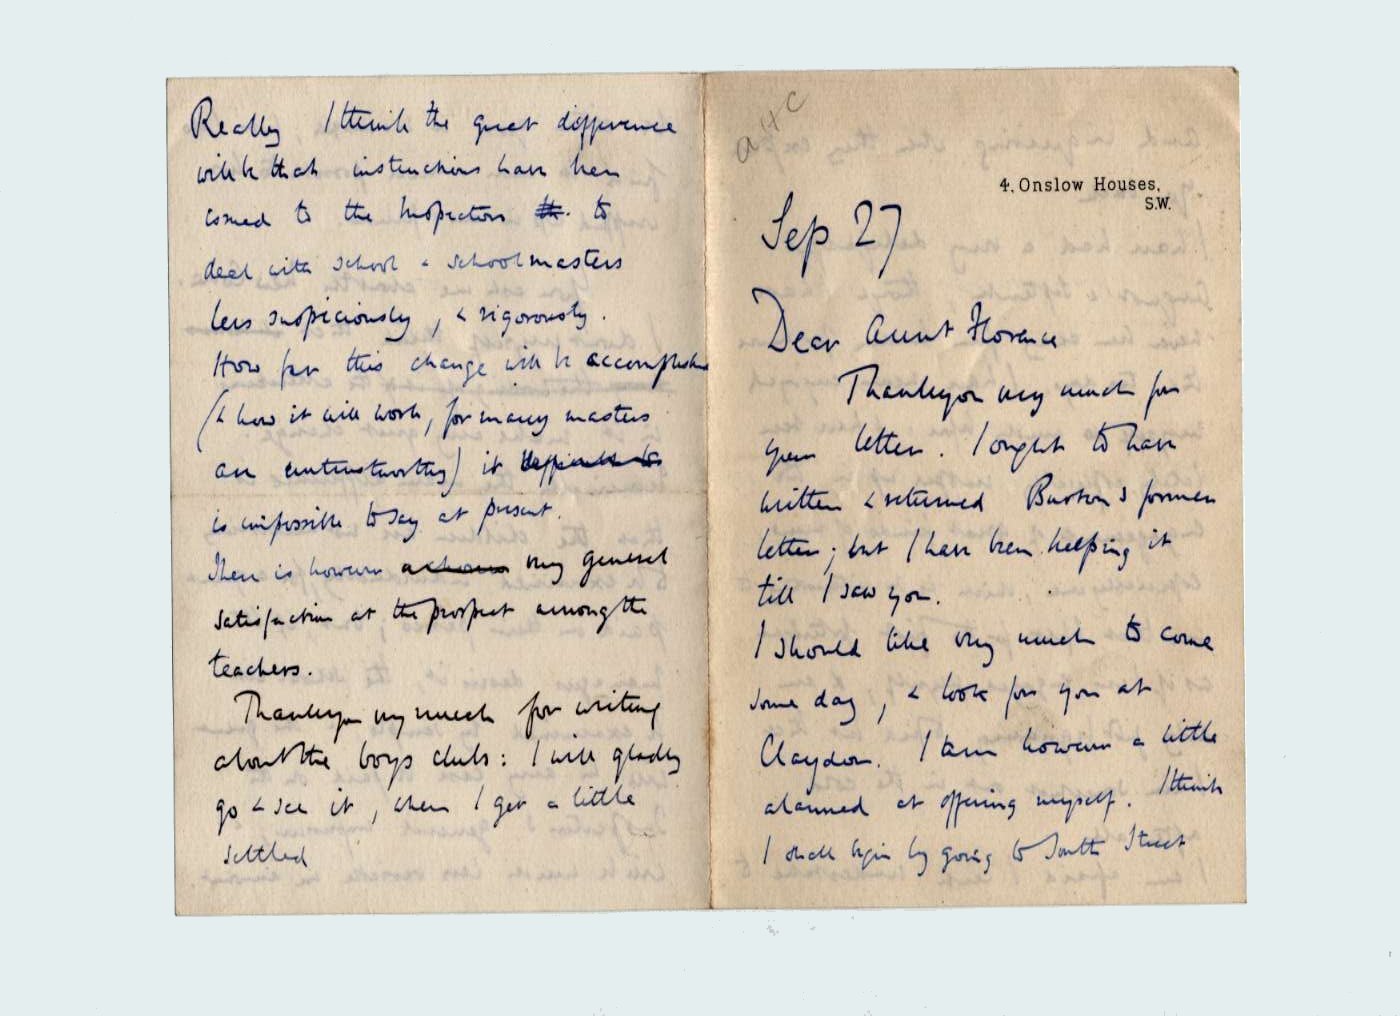 Really I think the great difference
will be that instructions have been
issued to the Inspectors to
deal with school & schoolmasters
less suspiciously, & rigorously.
How far this change will be accomplished
(& how it will work, for many masters
are untrustworthy) it
is impossible to say at present.
There is however very general
satisfaction at the prospect among the
teachers.
Thank you very much for writing
about the boys club: I will gladly
go & see it, when I get a little
settled
aHC
4, Onslow Houses,
S.W.
Sep 27
Dear Aunt Florence
Thank you very much for
your letter. I ought to have
written & returned Burton's former
letter; but I have been keeping it
till I saw you.
I should like very much to come
some day, & look for you at
Claydon. I am however a little
alarmed at offering myself. I think
I shall begin by going to South Street